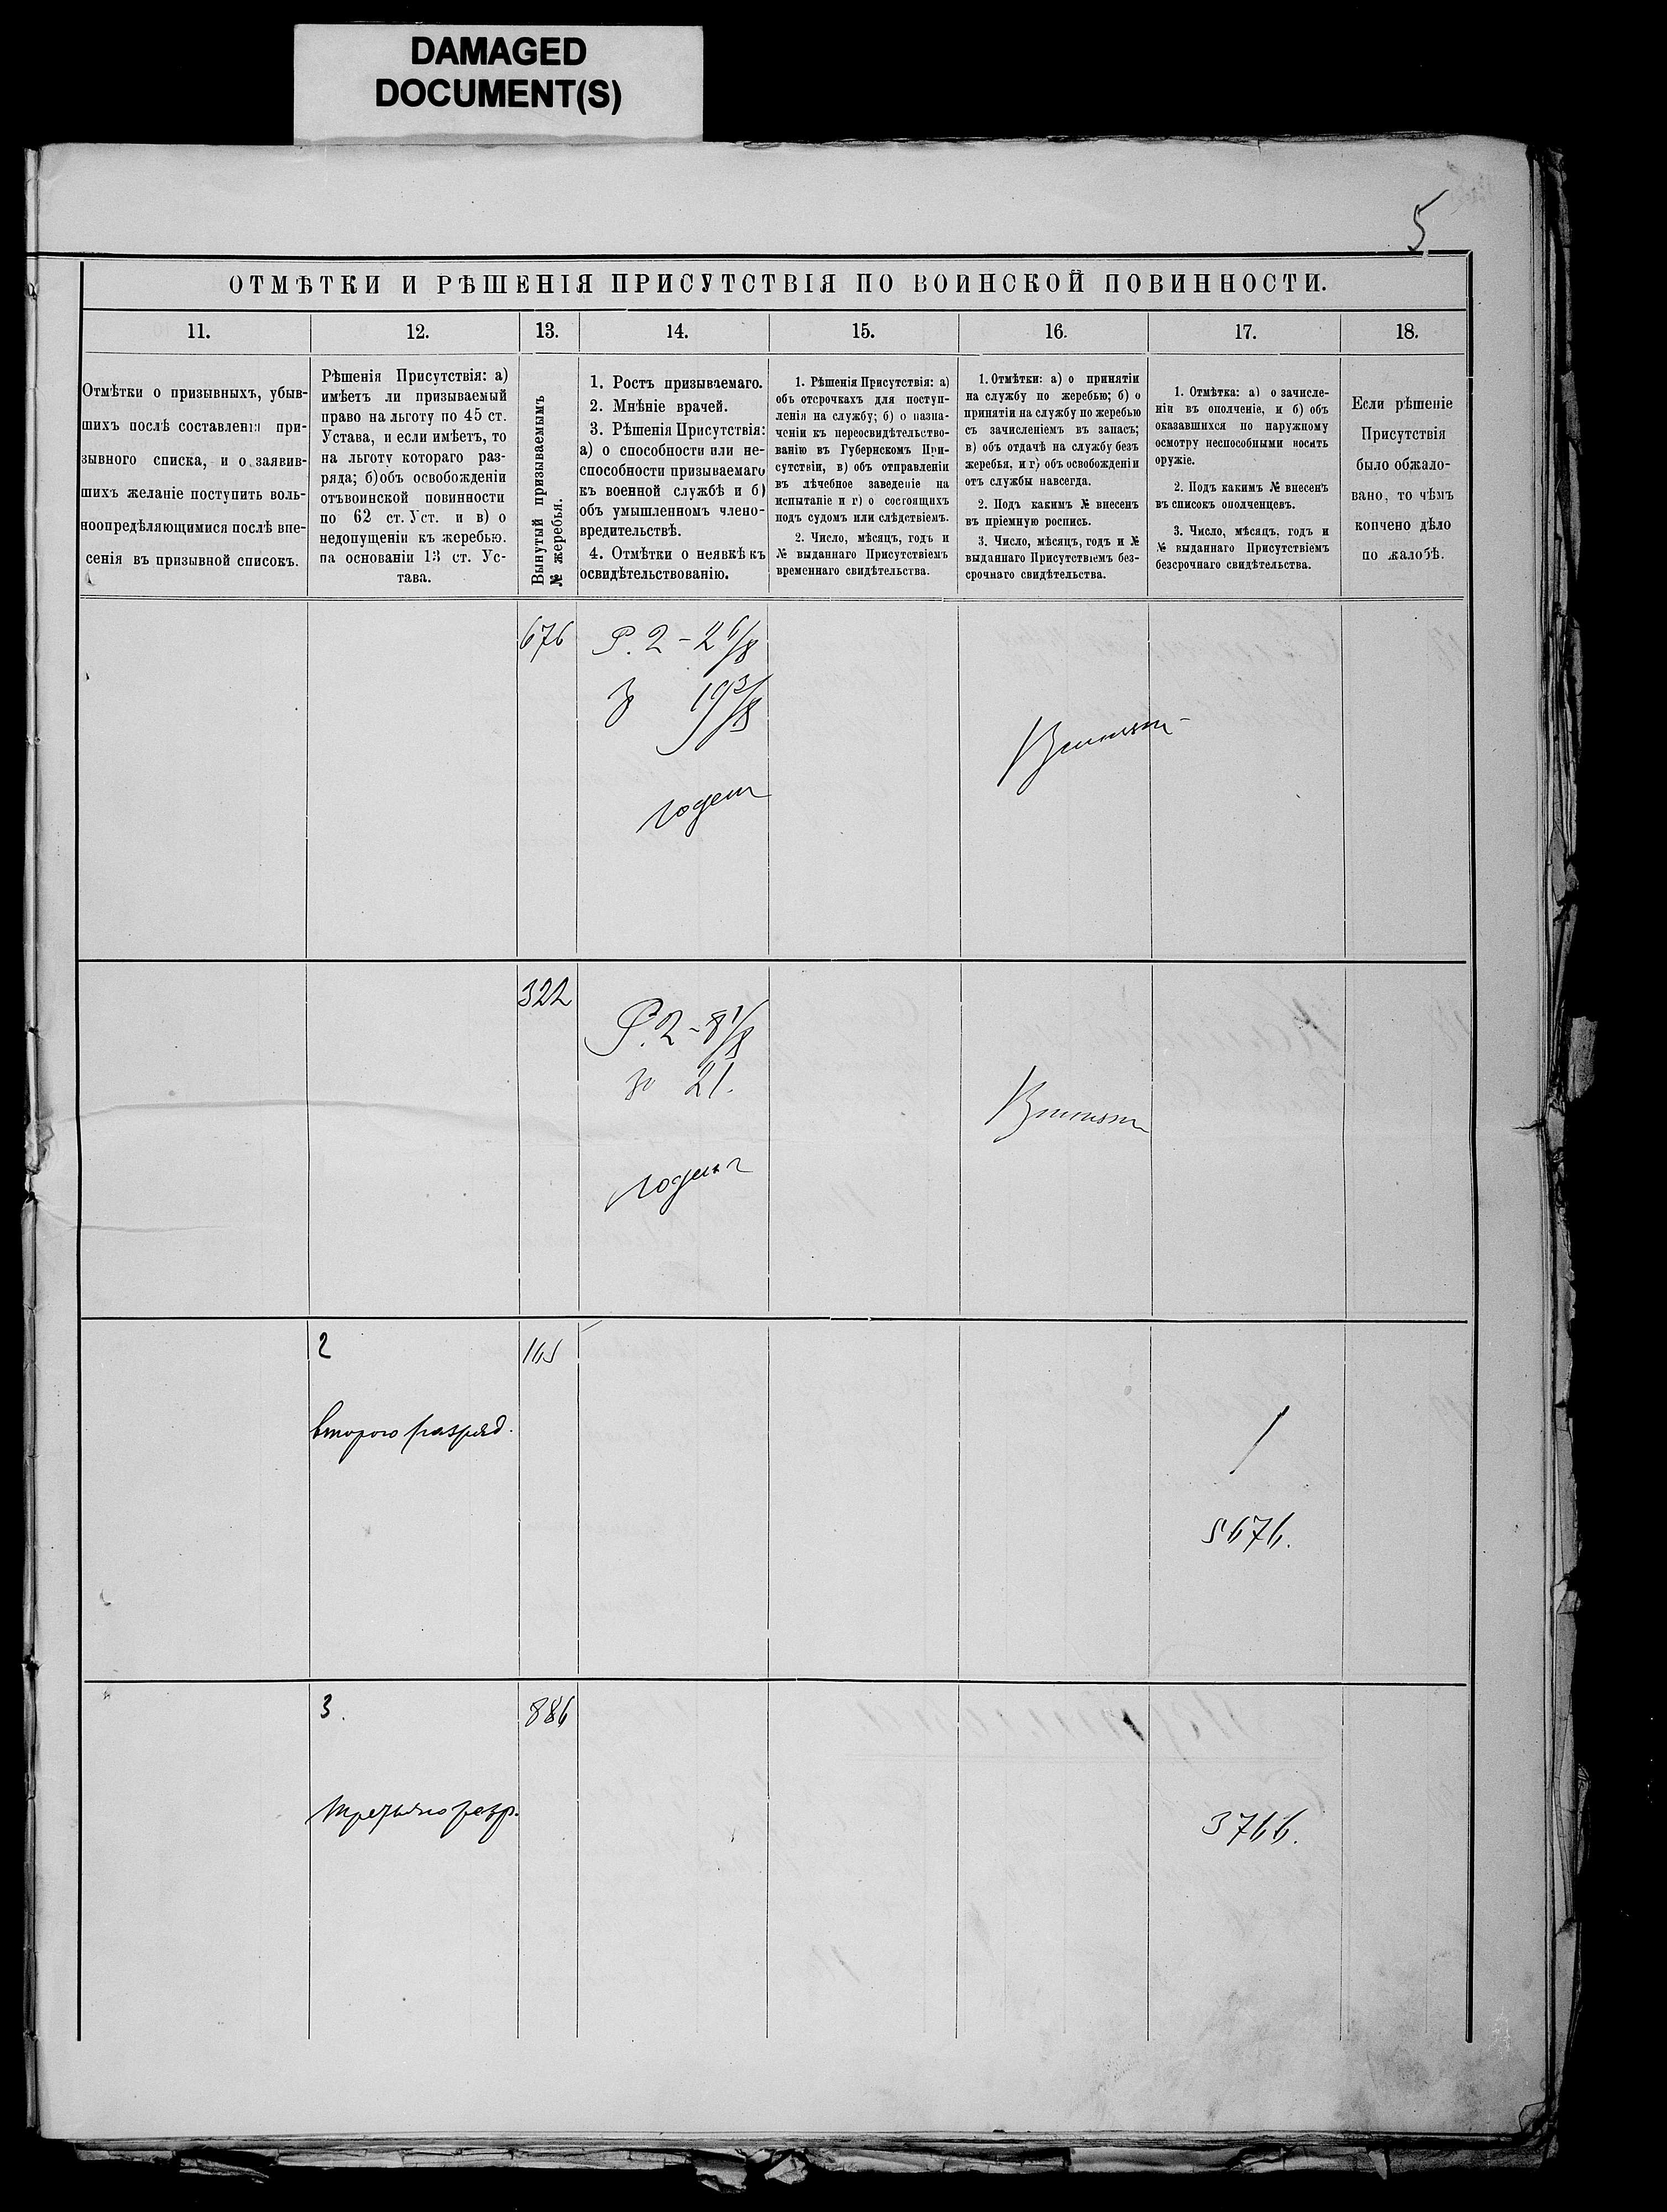 DAMAGED
DOCUMENT(S)
5
ОТМѢТКИ И РѢШЕНІЯ ПРИСУТСТВІЯ ПО ВОИНСКОЙ ПОВИННОСТИ.
11.
12.
13.
14.
15.
16.
17.
18.
Отмѣтки о призывныхъ, убыв-
шихъ послѣ составленія при-
зывного списка, и о заявив-
шихъ желаніе поступить воль-
ноопредѣляющимися послѣ вне-
сенія въ призывной списокъ.
Рѣшенія Присутствія: а)
имѣетъ ли призываемый
право на льготу по 45 ст.
Устава, и если имѣетъ, то
на льготу котораго раз-
ряда; б) объ освобожденіи
отъ воинской повинности
по 62 ст. Уст. и в) о
недопущеніи къ жеребью.
на основаніи 13 ст. Ус-
тава.
Вынутый призываемымъ
№ жеребья.
1. Ростъ призываемаго.
2. Мнѣніе врачей.
3. Рѣшенія Присутствія:
а) о способности или не-
способности призываемаго
къ военной службѣ и б)
объ умышленномъ члено-
вредительствѣ.
4. Отмѣтки о неявкѣ къ
освидѣтельствованію.
1. Рѣшенія Присутствія: а)
объ отсрочкахъ для поступ-
ленія на службу; б) о назна-
ченіи къ переосвидѣтельство-
ванію въ Губернскомъ При-
сутствіи, в) объ отправленіи
въ лѣчебное заведеніе на
испытаніе и г) о состоящихъ
подъ судомъ или слѣдствіемъ.
2. Число, мѣсяцъ, годъ и
№ выданнаго Присутствіемъ
временнаго свидѣтельства.
1. Отмѣтки: а) о принятіи
на службу по жеребью; б) о
принятіи на службу по жеребью
съ зачисленіемъ въ запасъ;
в) объ отдачѣ на службу безъ
жеребья, и г) объ освобожденіи
отъ службы навсегда.
2. Подъ какимъ № внесенъ
въ пріемную роспись.
3. Число, мѣсяцъ, годъ и №
выданнаго Присутствіемъ без-
срочнаго свидѣтельства.
1. Отмѣтка: а) о зачисле-
ніи въ ополченіе, и б) объ
оказавшихся по наружному
осмотру неспособными носить
оружіе.
2. Подъ какимъ № внесенъ
въ списокъ ополченцевъ.
3. Число, мѣсяцъ, годъ и
№ выданнаго Присутствіемъ
безсрочнаго свидѣтельства.
Если рѣшеніе
Присутствія
было обжало-
вано, то чѣмъ
кончено дѣло
по жалобѣ.
676
Р. 2 - 2 6/8
19 3/8
годенъ
322
Р. 2 - 8 1/8
21.
годенъ
2
165
второго разряд.
5676.
3.
886
третьяго разр.
3766.